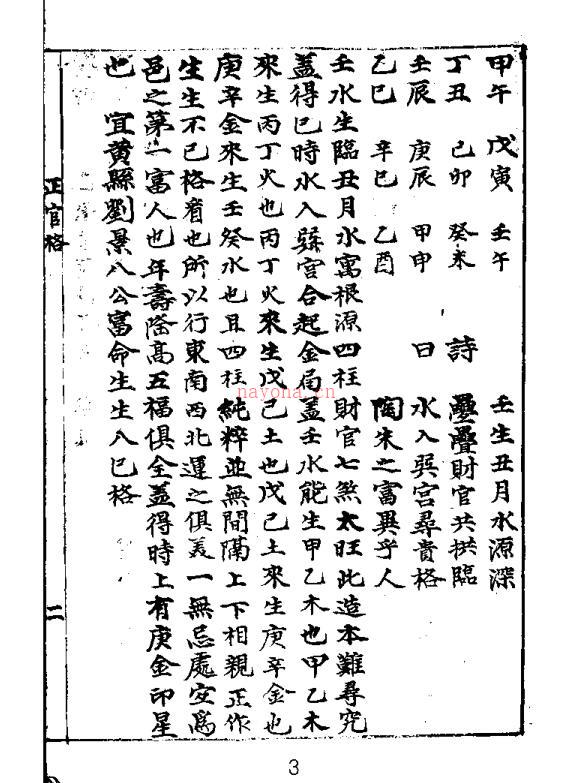 甲午 戊寅 壬午 壬生丑月水源深
丁丑 己卯 癸未 詩 疊疊財官共拱臨
壬辰 庚辰 甲申 曰 水入巽宮尋貴格
乙巳 辛巳 乙酉 陶朱之富異乎人
壬水生臨丑月水寓根源四柱財官七煞太旺此造本難尋究
蓋得巳時水入巽宮合起金局蓋壬水能生甲乙木也甲乙木
來生丙丁火也丙丁火來生戊己土也戊己土來生庚辛金也
庚辛金來生壬癸水也且四柱純粹並無間隔上下相親正作
生生不已格看也所以行東南西北運之俱美一無忌處定爲
邑之第一富人也年壽隆高五福俱全蓋得時上有庚金印星
也 宜黃縣劉景八公富命生生八巳格
正官格 二
3
nayona.cn